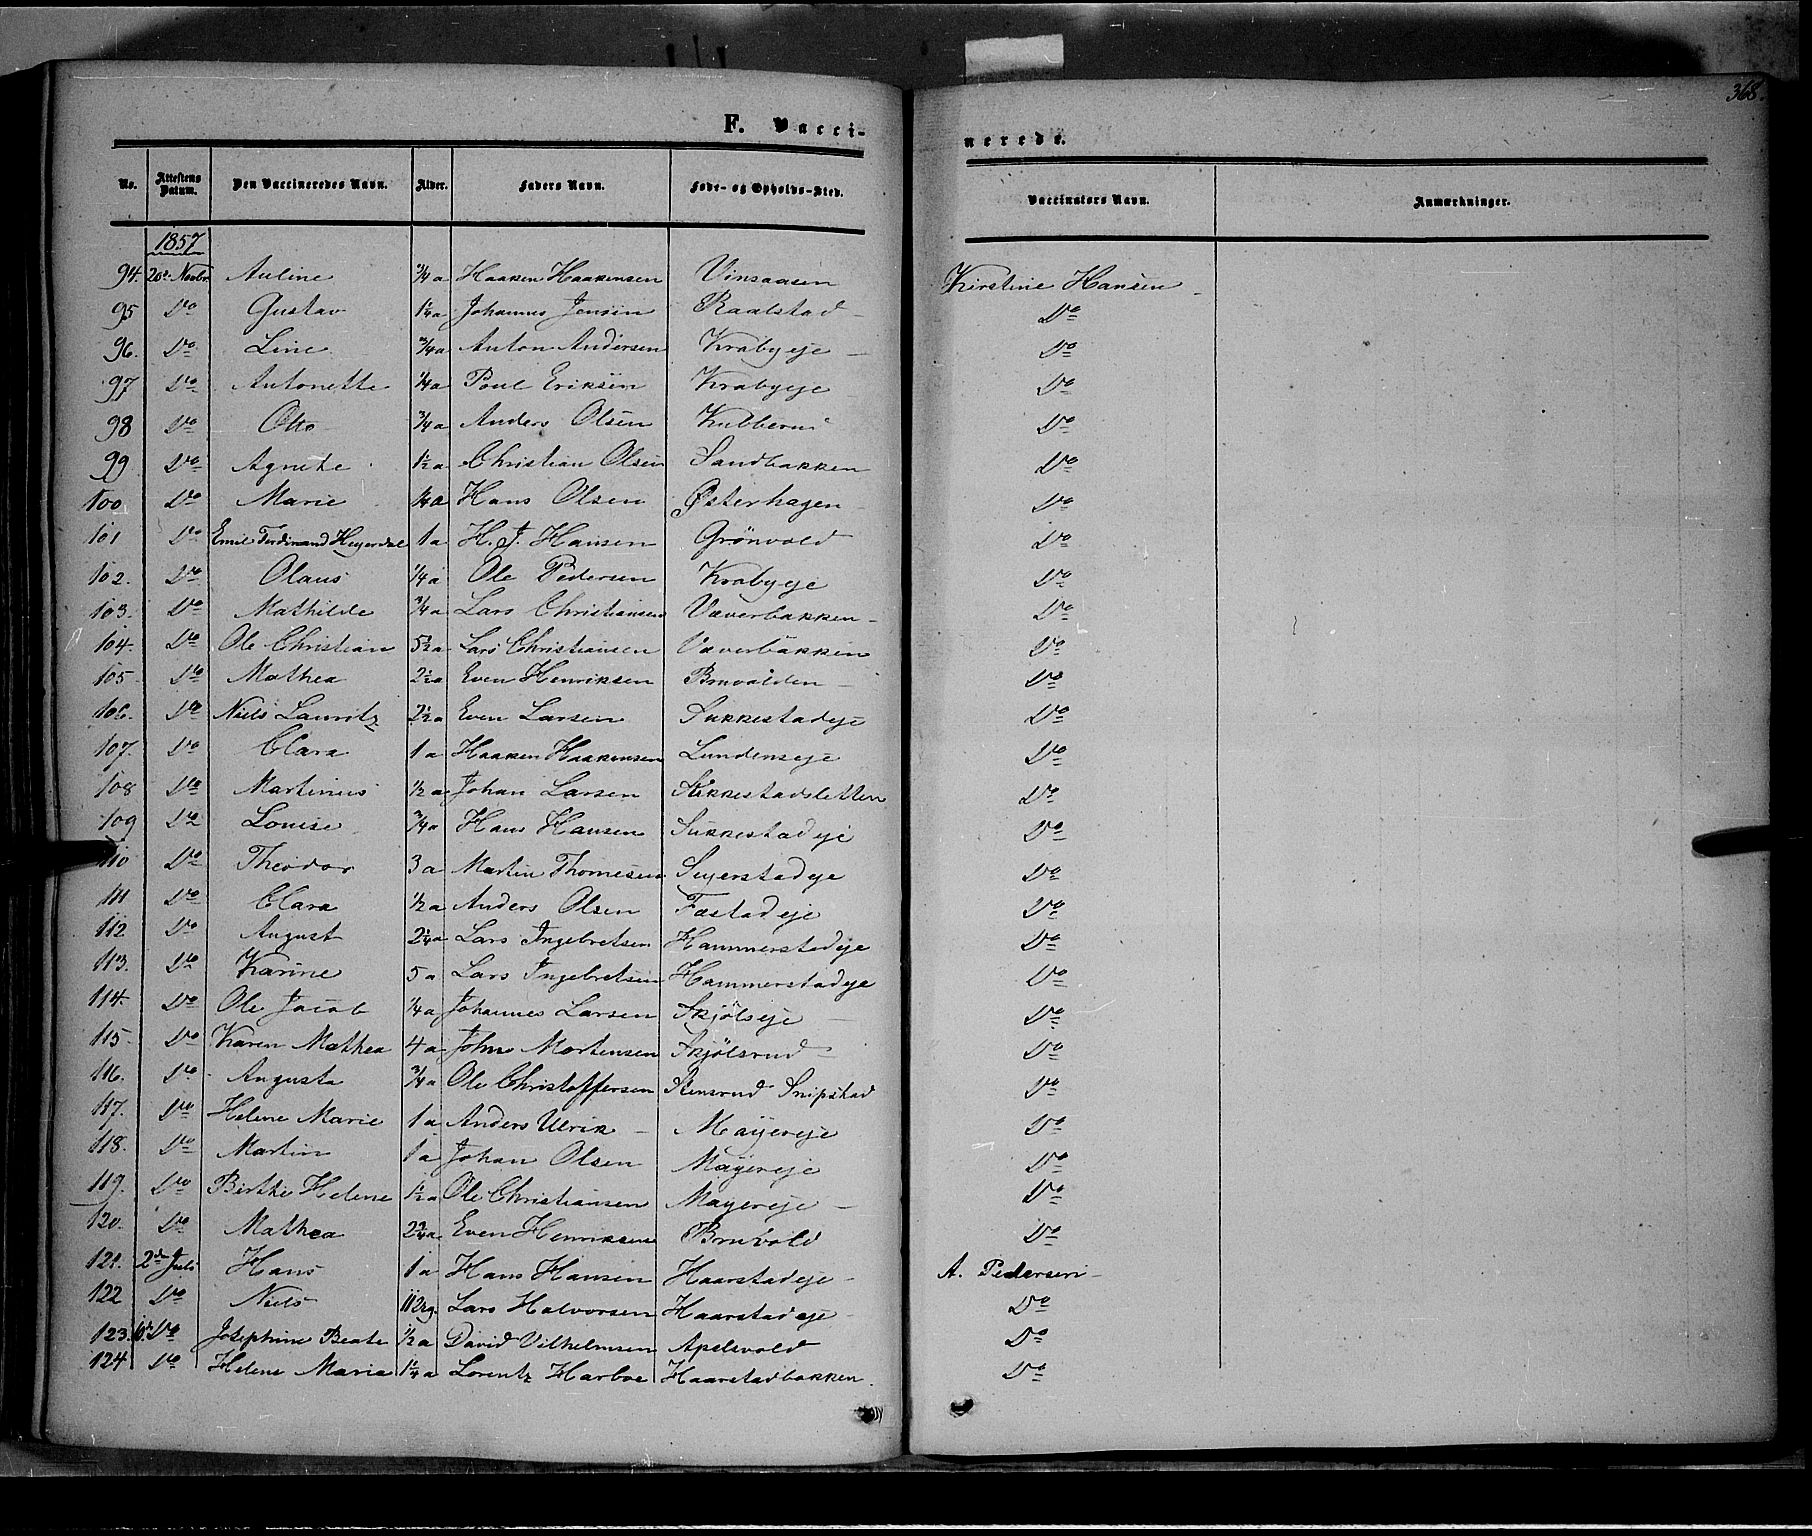 368.
F. Vacci-
nerede.
No. Attestens Datum. Den Vaccineredes Navn. Alder. Faders Navn. Føde- og Opholds-Sted. Vaccinators Navn. Anmærkninger.
1857
94. 20de Novbr Auline ¾ a Haaken Haakensen Vinsaasen Kirstine Hansen
95 Do Gustav Johannes Jensen Raalstad Do
96. Do Line ¾ a Anton Andersen Krabyeje Do
97 Do Antonette ¼ a Poul Eriksen Krabyeje Do
98 Do Otto ¾ a Anders Olsen Do
99 Do Agnete 1½ a Christian Olsen Sandbakken Do
100 Do Marie ¼ a Hans Olsen Østerhagen Do
101 Do Emil Ferdinand Heyerdal 1 a H. J. Hansen Grönvold Do
102. Do Olaus ¼ a Ole Pedersen Krabyeje Do
103. Do Mathilde ¾ a Lars Christiansen Væverbakken Do
104. Do Ole Christian 5½ a Lars Christiansen Væverbakken Do
105 Do Mathea 2½ a Even Henriksen Bruvolden Do
106. Do Niels Lauritz 2½ a Even Larsen Sukkestadeje Do
107. Do Clara 1 a Haaken Haakensen Lundenseje Do
108 Do Martinus ½ a Johan Larsen Sukkestadsletten Do
109 Do Louise ¾ a Hans Hansen Sukkestadeje Do
110 Do Theodor 3 a Martin Thomesen Seyerstadeje Do
111 Do Clara ½ a Anders Olsen Fæstadeje Do
112 Do August 2¼ a Lars Ingebretsen Hammerstadeje Do
113. Do Karine 5 a Lars Ingebretsen Hammerstadeje Do
114. Do Ole Jacob ¼ a Johannes Larsen Skjölseje Do
115 Do Karen Mathea 4 a John Mortensen Skjölsrud Do
116. Do Augusta ¾ a Ole Christoffersen Stensrud Snipstad Do
117. Do Helene Marie 1 a Anders Ulrik Mayereje Do
118. Do Martin 1 a Johan Olsen Mayereje Do
119. Do Birthe Helene 1½ a Ole Christiansen Mayereje Do
120. Do Mathea 2¾ a Even Henriksen Bruvold Do
121. 2den Juli Hans 1 a Hans Hansen Haarstadeje A. Pedersen
122 Do Niels Lars Halvorsen Haarstadeje Do
123. Do Josephine Beate ½ a David Vilhelmsen Apelsvold Do
124 Do Helene Marie 1¼ a Lorentz Harboe Haarstadbakken. Do